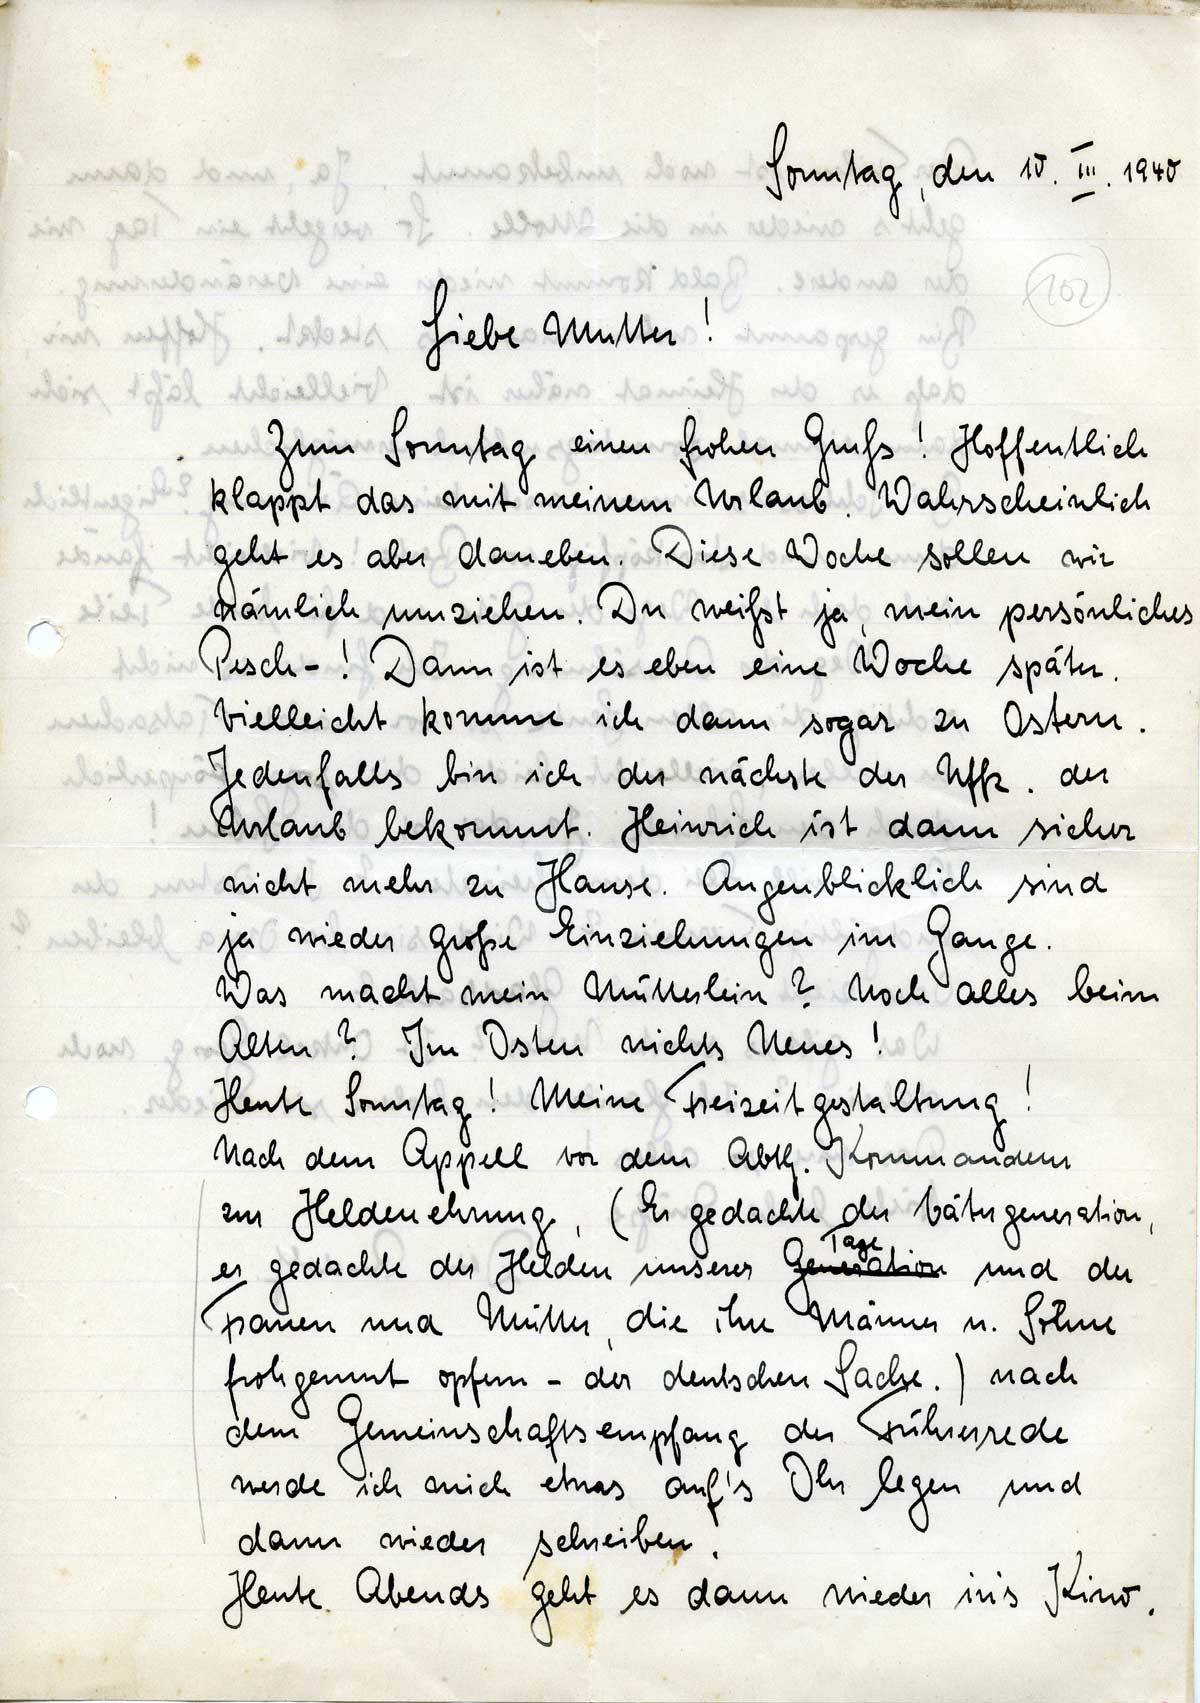 Sonntag, den 10. III. 1940
102
Liebe Mutter!
Zum Sonntag einen frohen Gruß! Hoffentlich
klappt das mit meinem Urlaub. Wahrscheinlich
geht es aber daneben. Diese Woche sollen wir
nämlich umziehen. Du weißt ja, mein persönliches
Pesch-! Dann ist es eben eine Woche später.
Vielleicht komme ich dann sogar zu Ostern.
Jedenfalls bin ich der nächste der Uffz. der
Urlaub bekommt. Heinrich ist dann sicher
nicht mehr zu Hause. Augenblicklich sind
ja wieder große Einziehungen im Gange.
Was macht mein Mütterlein? Noch alles beim
Alten? Im Osten nichts Neues!
Heute Sonntag! Meine Freizeitgestaltung!
Nach dem Appell vor dem Abtlg. Kommandeur
zur Heldenehrung, (Er gedachte der Vätergeneration,
er gedachte der Helden unserer Generation Tage und der
Frauen und Mütter, die ihre Männer u. Söhne
frohgemut opfern - der deutschen Sache.) nach
dem Gemeinschaftsempfang der Führerrede
werde ich mich etwas auf's Ohr legen und
dann wieder schreiben.
Heute Abends geht es dann wieder in's Kino.